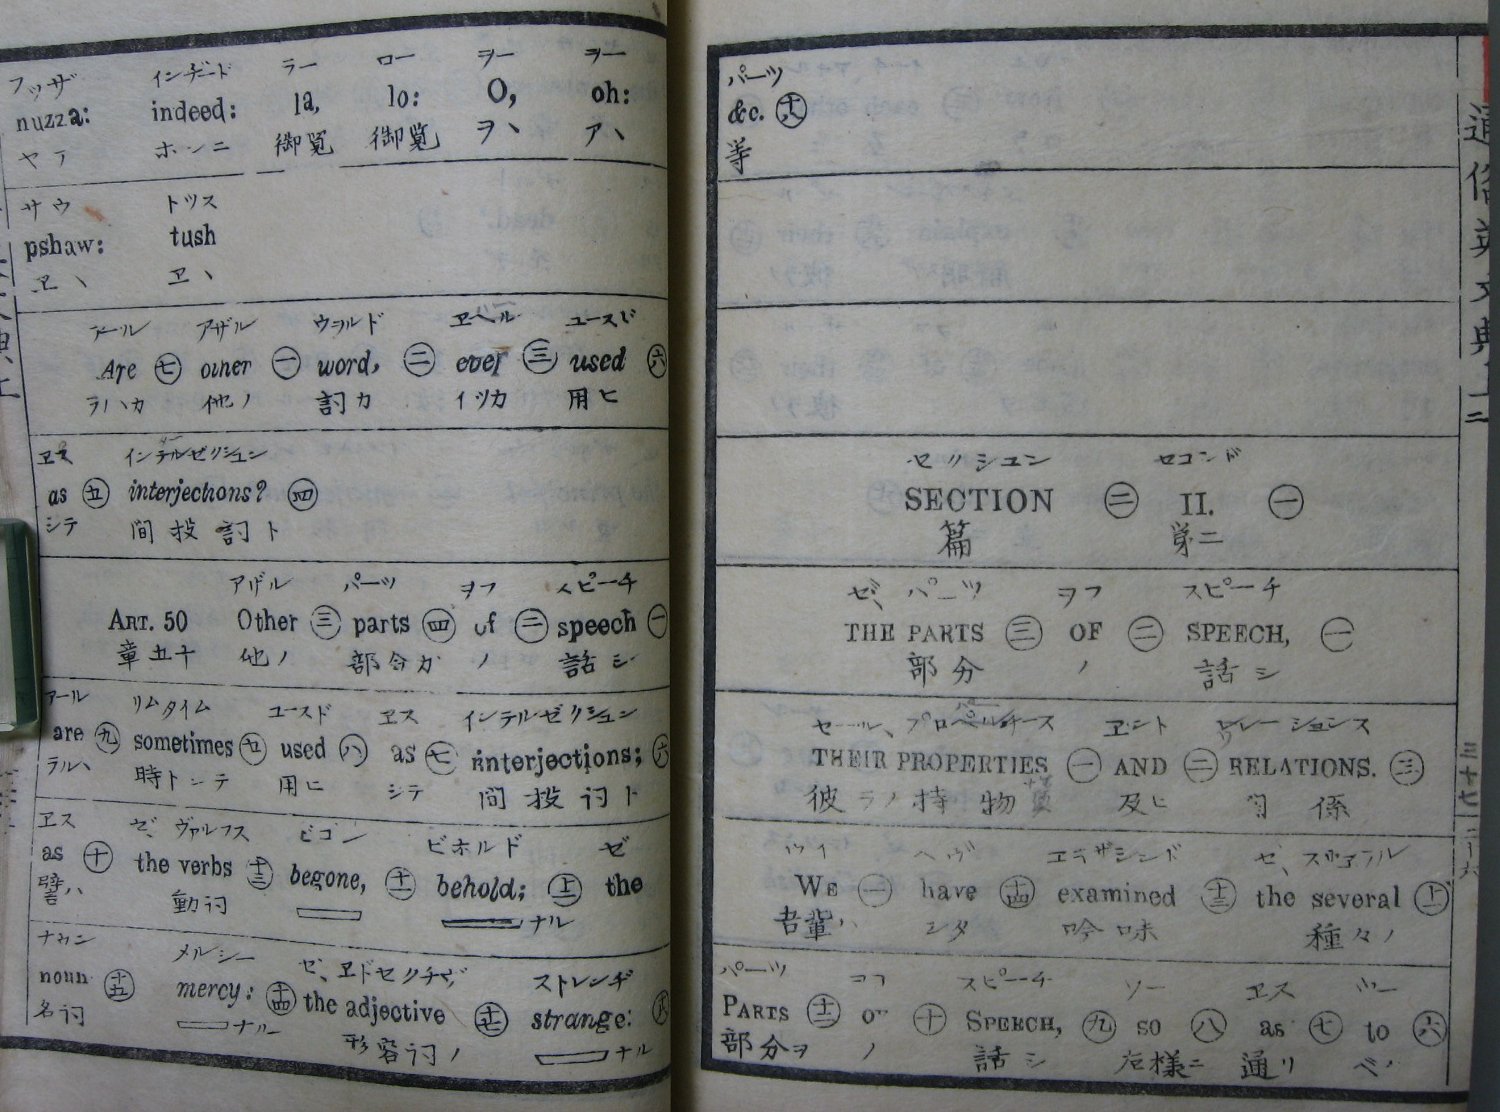 フッザ インヂード ラー ロー ヲー ヲー
nuzza: indeed: la, lo: O, oh:
ヤア ホンニ 御覧 御覧 ヲヽ アヽ
サウ トツス
pshaw: tush
ヱヽ ヱヽ
アール アザル ウヲルド ヱヘル ユースド
Are 七 other 一 word, 二 ever 三 used 六
ラハカ 他ノ 詞カ イツカ 用ヒ
ヱス インテルゼクシユン
as 五 interjections? 四
シテ 間投詞ト
アザル パーツ ヲフ スピーチ
ART. 50 Other 三 parts 四 of 二 speech 一
章五十 他ノ 部分カ ノ 話シ
アール リムタイム ユースド ヱス インテルゼクシュン
are 九 sometimes used 八 as 七 interjections; 六
ラルヽ 時トシテ 用ヒ シテ 間投詞ト
ヱス ゼ、ヴァルブス ビゴン ビホルド ゼ
as 十 the verbs 十三 begone, 十二 behold; 十一 the
譬ハ 動詞 ナル
メルシー ゼ、ヱドセクチヴ、 ストレンヂ
noun 十五 mercy: 十四 the adjective strange: 八
名詞 ナル 形容詞ノ ナル
通俗英文典 上 二
三十七
パーツ
&c. 十八
等
セクシユン セコンド
SECTION 二 II. 一
篇 第二
ゼ、パーツ ヲフ スピーチ
THE PARTS 三 OF 二 SPEECH, 一
部分 ノ 話シ
セール、プロペルチース ヱント レーションス
THEIR PROPERTIES 一 AND 二 RELATIONS. 三
彼ラノ 持物 及ヒ 関係
ウイ ヘヴ ヱキザシンド ゼ、スヴヱラル
WE 一 have 十四 examined 十三 the several 十一
吾輩ハ シタ 吟味 種々ノ
パーツ ヲフ スピーチ ソー ヱス ツー
PARTS 十二 of 十 SPEECH, 九 so 八 as 七 to 六
部分ヲ ノ 話シ 左様ニ 通リ ベ